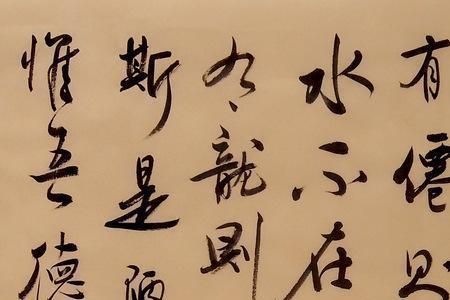 有僊則
水不在
有龍則
斯是陋
惟吾德